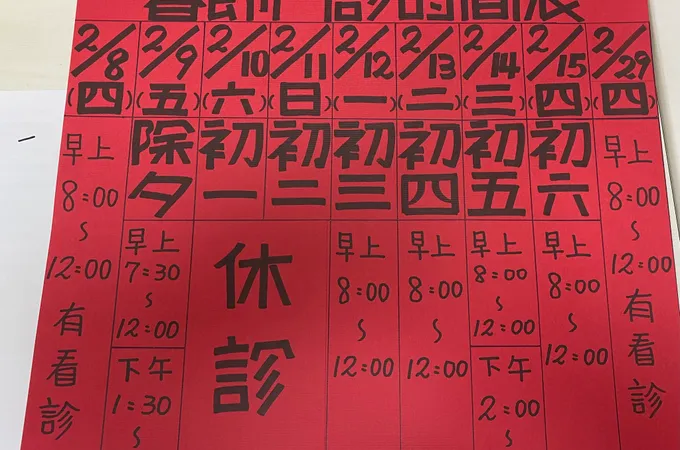 春節 診時間表
2/8 2/9 2/10 2/11 2/12 2/13 2/14 2/15 2/29
(四) (五) (六) (日) (一) (二) (三) (四) (四)
除夕 初一 初二 初三 初四 初五 初六
早上
8:00
~
12:00
有看診
早上
7:30
~
12:00
下午
1:30
~
休診
早上
8:00
~
12:00
早上
8:00
~
12:00
早上
8:00
~
12:00
下午
2:00
~
早上
8:00
~
12:00
早上
8:00
~
12:00
有看診